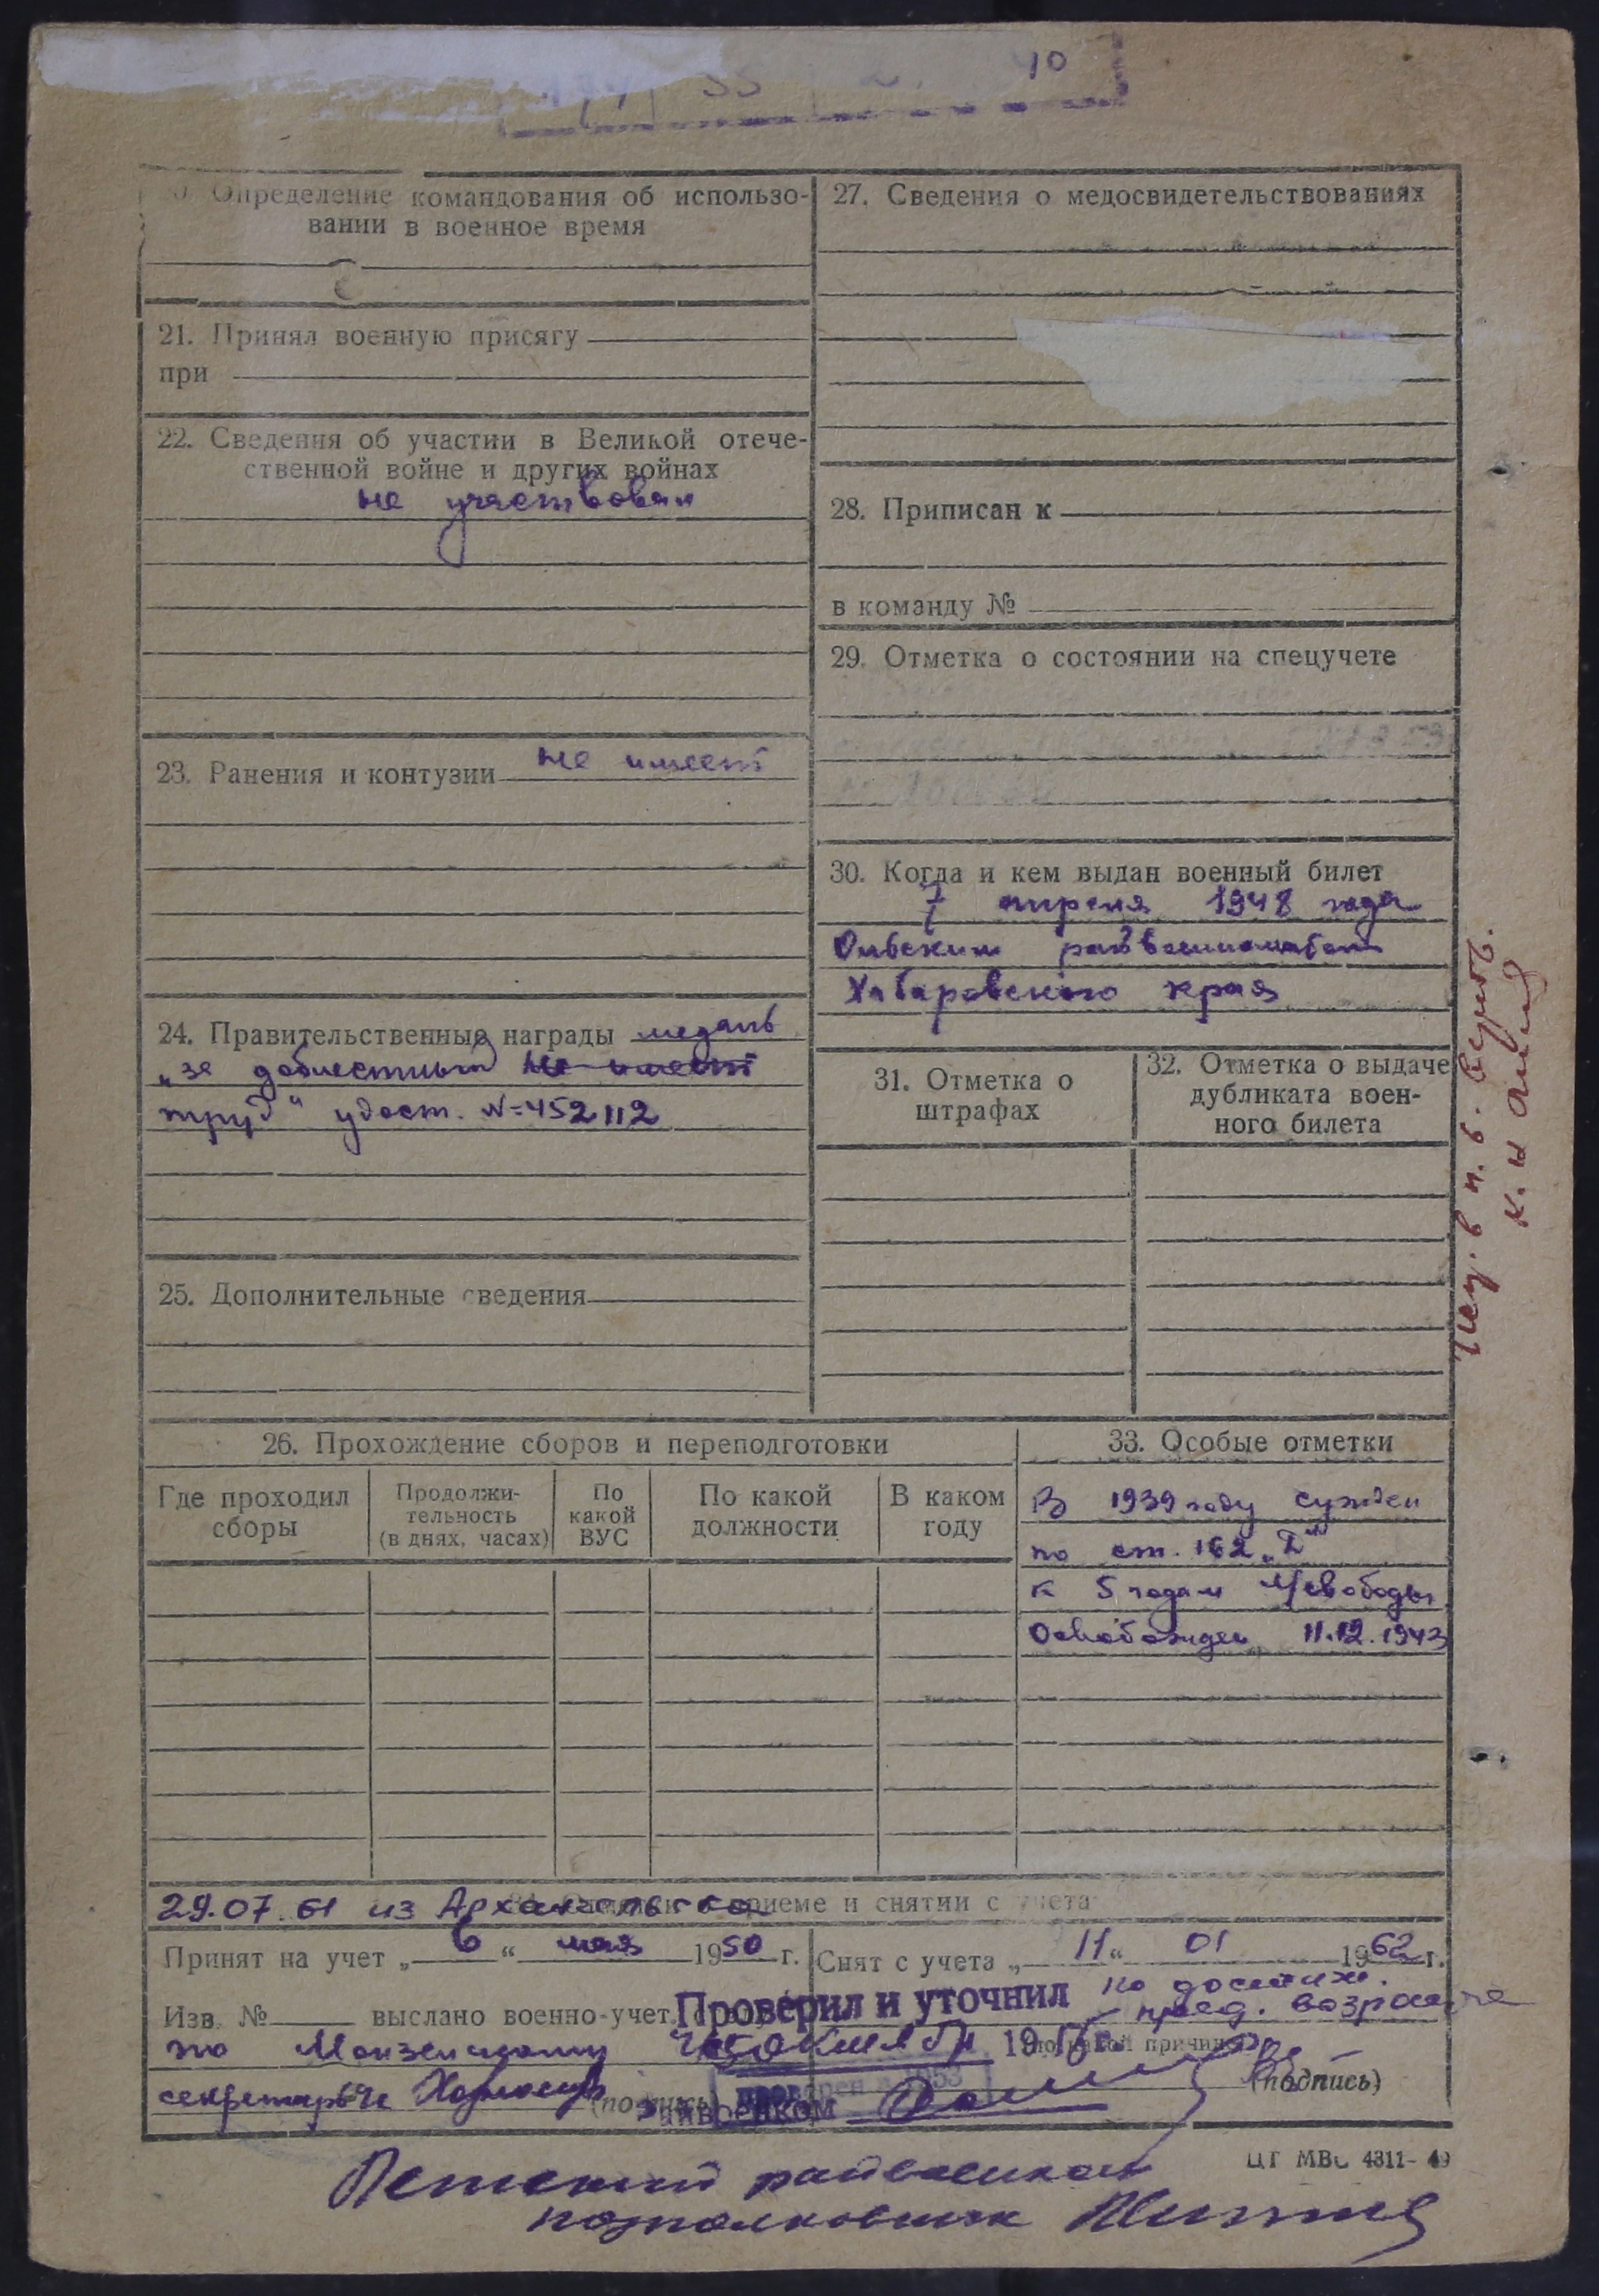 10
Определение командования об использо-
вании в военное время
21. Принял военную присягу
при
22. Сведения об участии в Великой отече-
ственной войне и других войнах
не участвовал
23. Ранения и контузии не имеет
24. Правительственные награды медаль
„за доблестный не имеет
труд" удост. №452112
25. Дополнительные сведения
27. Сведения о медосвидетельствованиях
28. Приписан к
в команду №
29. Отметка о состоянии на спецучете
30. Когда и кем выдан военный билет
7 апреля 1948 года
Ольским райвоенкоматом
Хабаровского края
31. Отметка о
штрафах
32. Отметка о выдаче
дубликата воен-
ного билета
26. Прохождение сборов и переподготовки
Где проходил
сборы
Продолжи-
тельность
(в днях, часах)
По
какой
ВУС
По какой
должности
В каком
году
33. Особые отметки
В 1939 году сужден
по ст. 162 „Д"
к 5 годам л/свободы
Освобожден 11.12.1943
29.07.61 из Архангельска приеме и снятии с учета
Принят на учет „6“ мая 1950 г.
Снят с учета „11“ 01 1962 г.
по достиж.
пред. возраста
Изв. № выслано военно-учет.
Проверил и уточнил
по
19
(подпись)
секретарь
райвоенком
райвоенком
подполковник
ЦТ МВС 4311-49